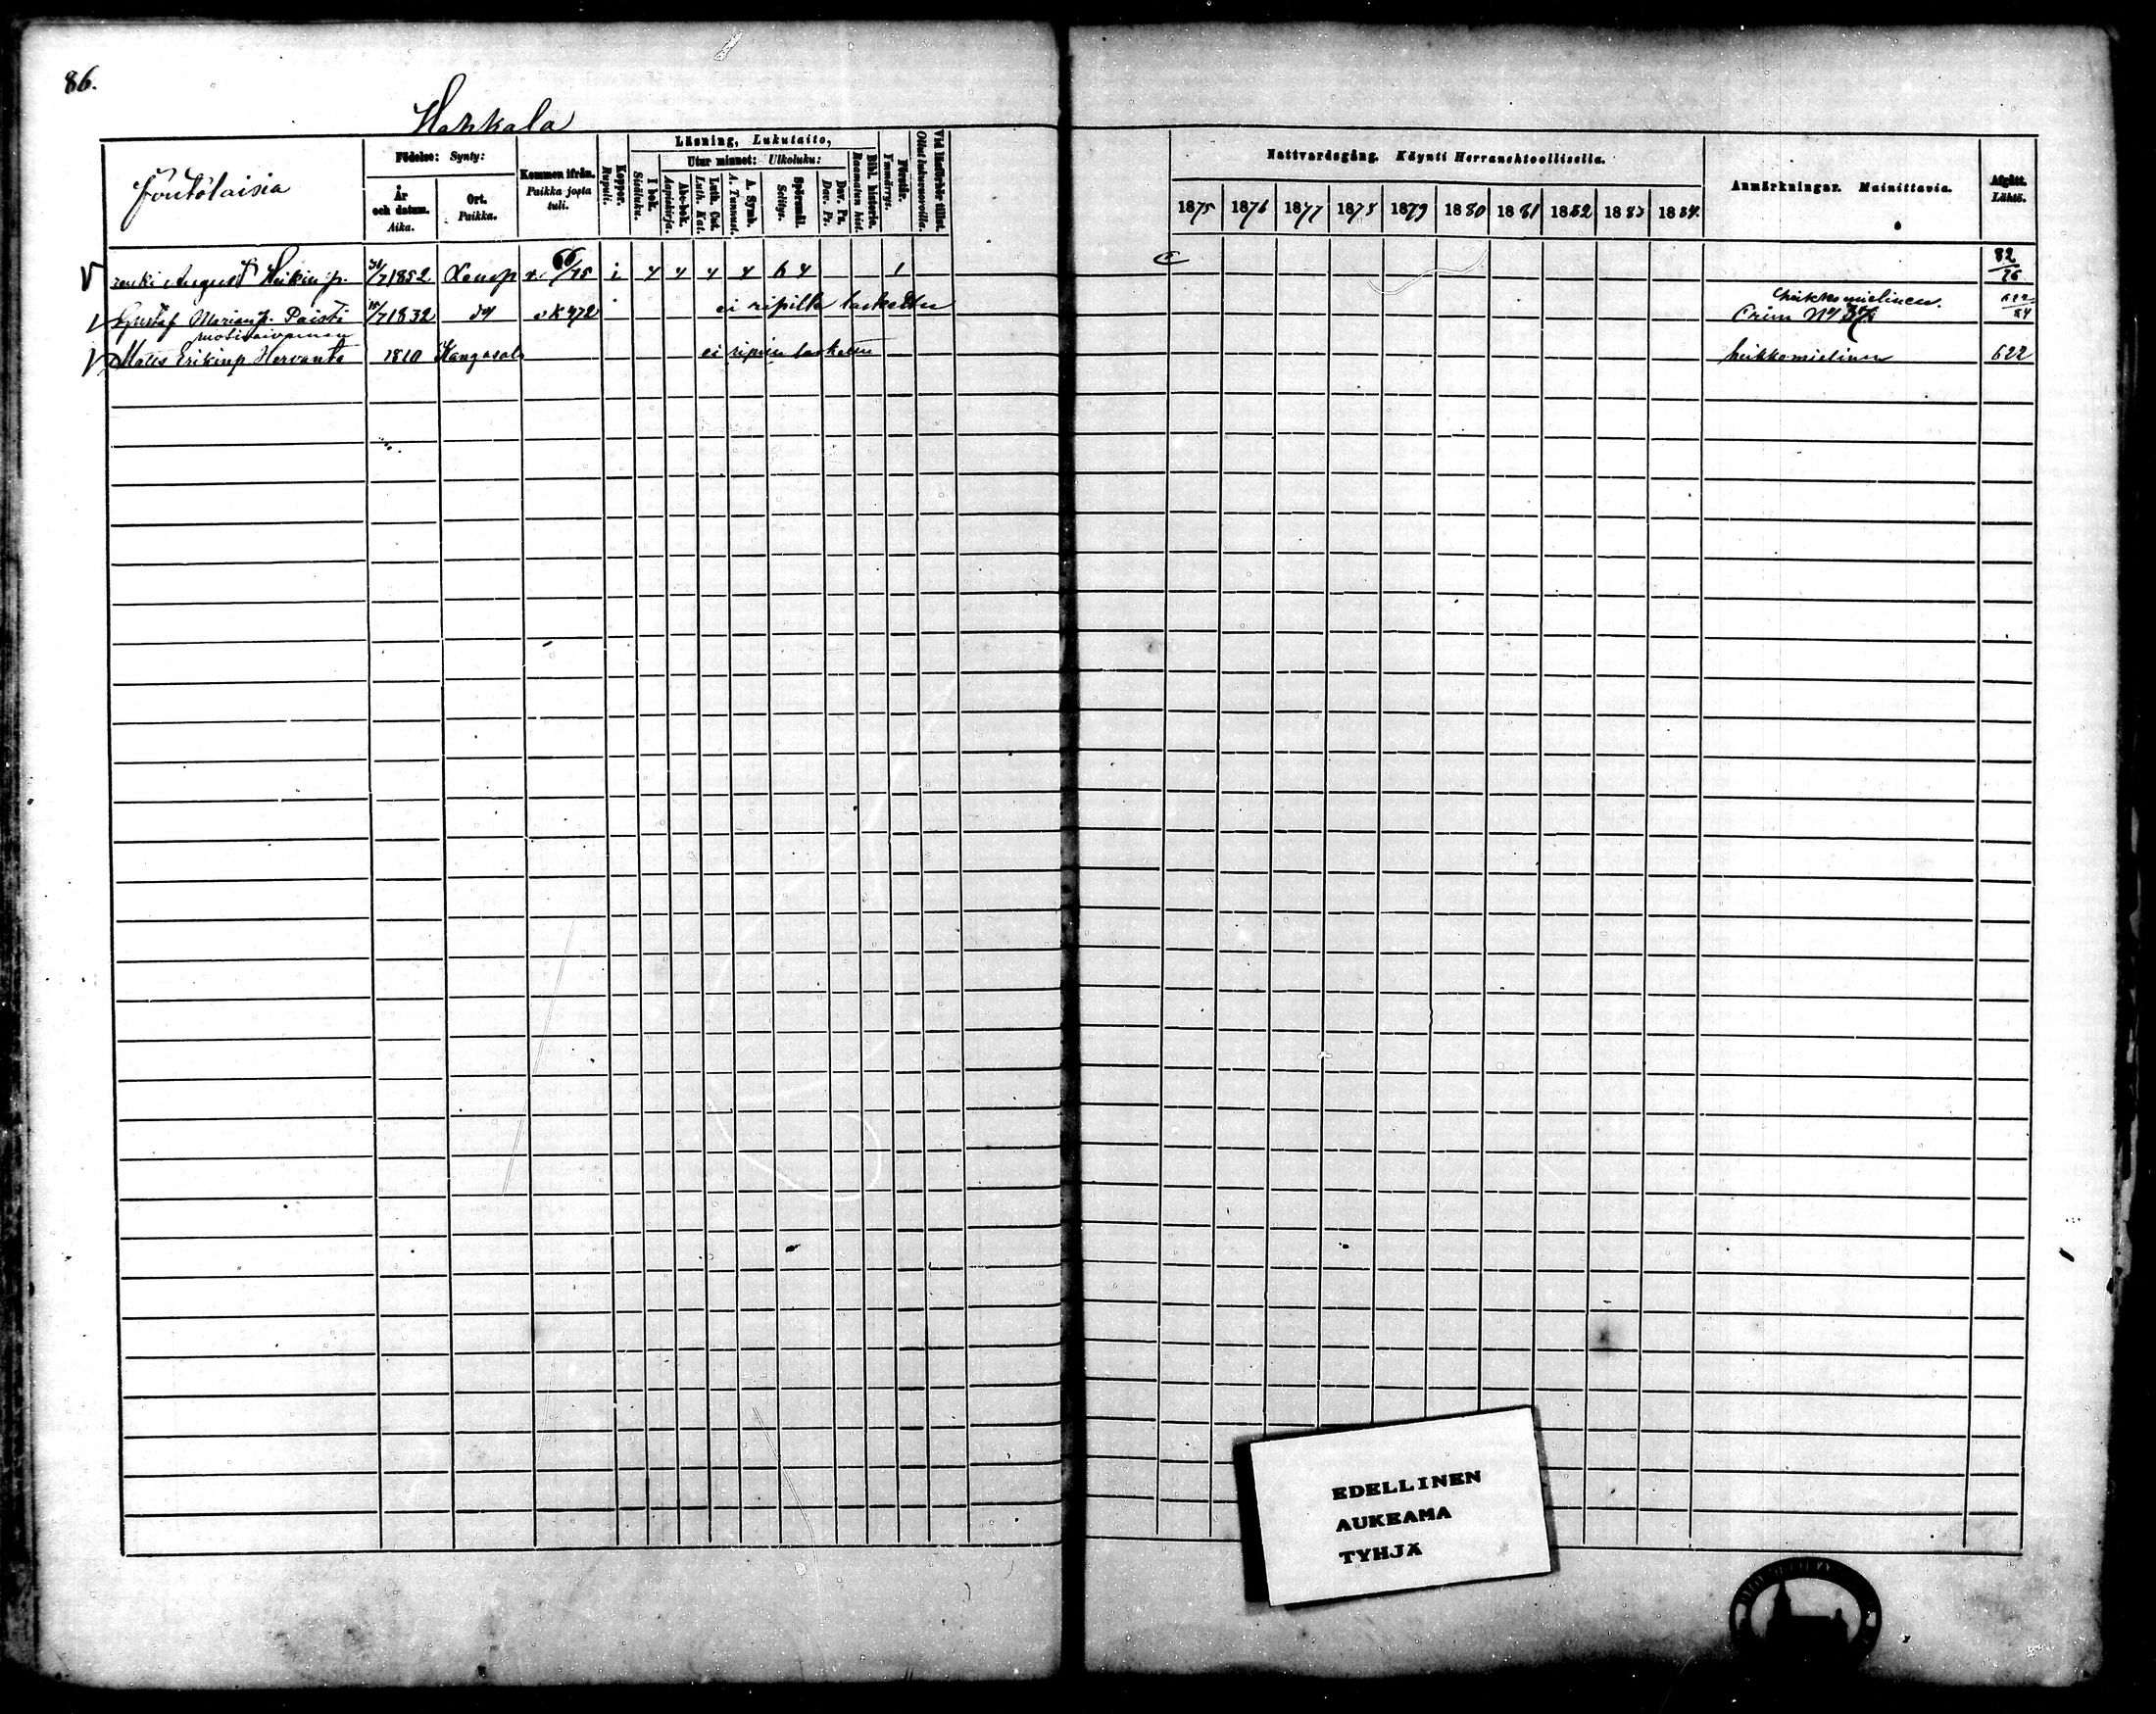 86.
Hankala
Joutolaisia
Födelse: Synty:
År och datum. Aika.
Ort. Paikka.
Kommen ifrån. Paikka josta tuli.
Koppor. Rupuli.
Läsning, Lukutaito,
I bok. Sisäluku.
Utur minnet: Ulkoluku:
Abc-bok. Aapiskirja.
Luth. Cat. Luth. Kat.
A. Symb. A. Tunnust.
Spörsmål. Selitys.
Dav. Ps. Dav. Ps.
Bibl. historia. Raamatun hist.
Förstår. Ymmärrys.
Vid läseförhör tillst. Ollut lukuvuoroilla.
Nattvardsgång. Käynti Herranehtoollisella.
1875 1876 1877 1878 1879 1880 1881 1882 1883 1884.
Anmärkningar. Mainittavia.
Afgått. Lähtö.
renki August Heikinp. 1852 Lemp 66/75 i 4 4 4 4 6 4 1 82/76
heikkomielinen. 622/84
Gustaf Marianp. Paisti 1832 do v K 472 ei ripille laskettu Crim No
ruotivaivainen
Matts Erikinp Hervanta 1810 Kangasala ei ripille laskettu heikkomielinen 622
EDELLINEN
AUKEAMA
TYHJÄ